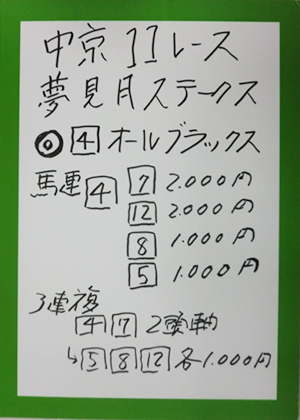 中京11レース
夢見月ステークス
◎ 4 オールブラックス
馬連 4 7 2.000円
12 2.000円
8 1.000円
5 1.000円
3連複
4 7 2頭軸
↳ 5 8 12 各1.000円